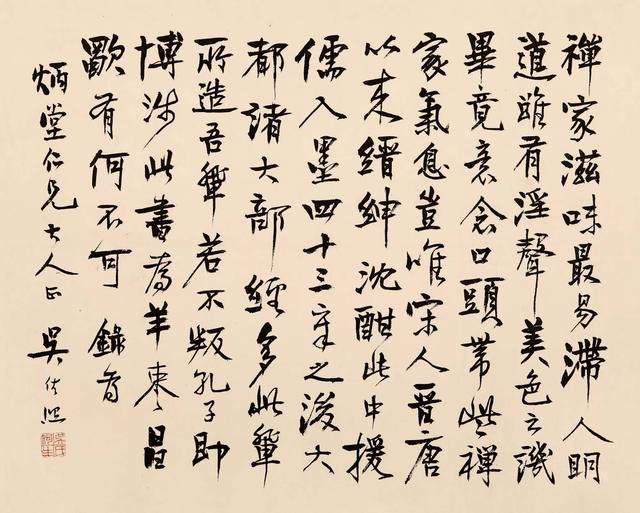 禪家滋味最易滯人明
道雖有淫聲美色之譏
畢竟意念口頭帶些禪
家氣息豈唯宋人晉唐
以来縉紳沈酣此中援
儒入墨四十三章之後大
都諸大部經多此輩
所造吾輩若不叛孔子即
博涉此書為羊棗昌
歜有何不可 錄為
炳堂仁兄大人正 吳